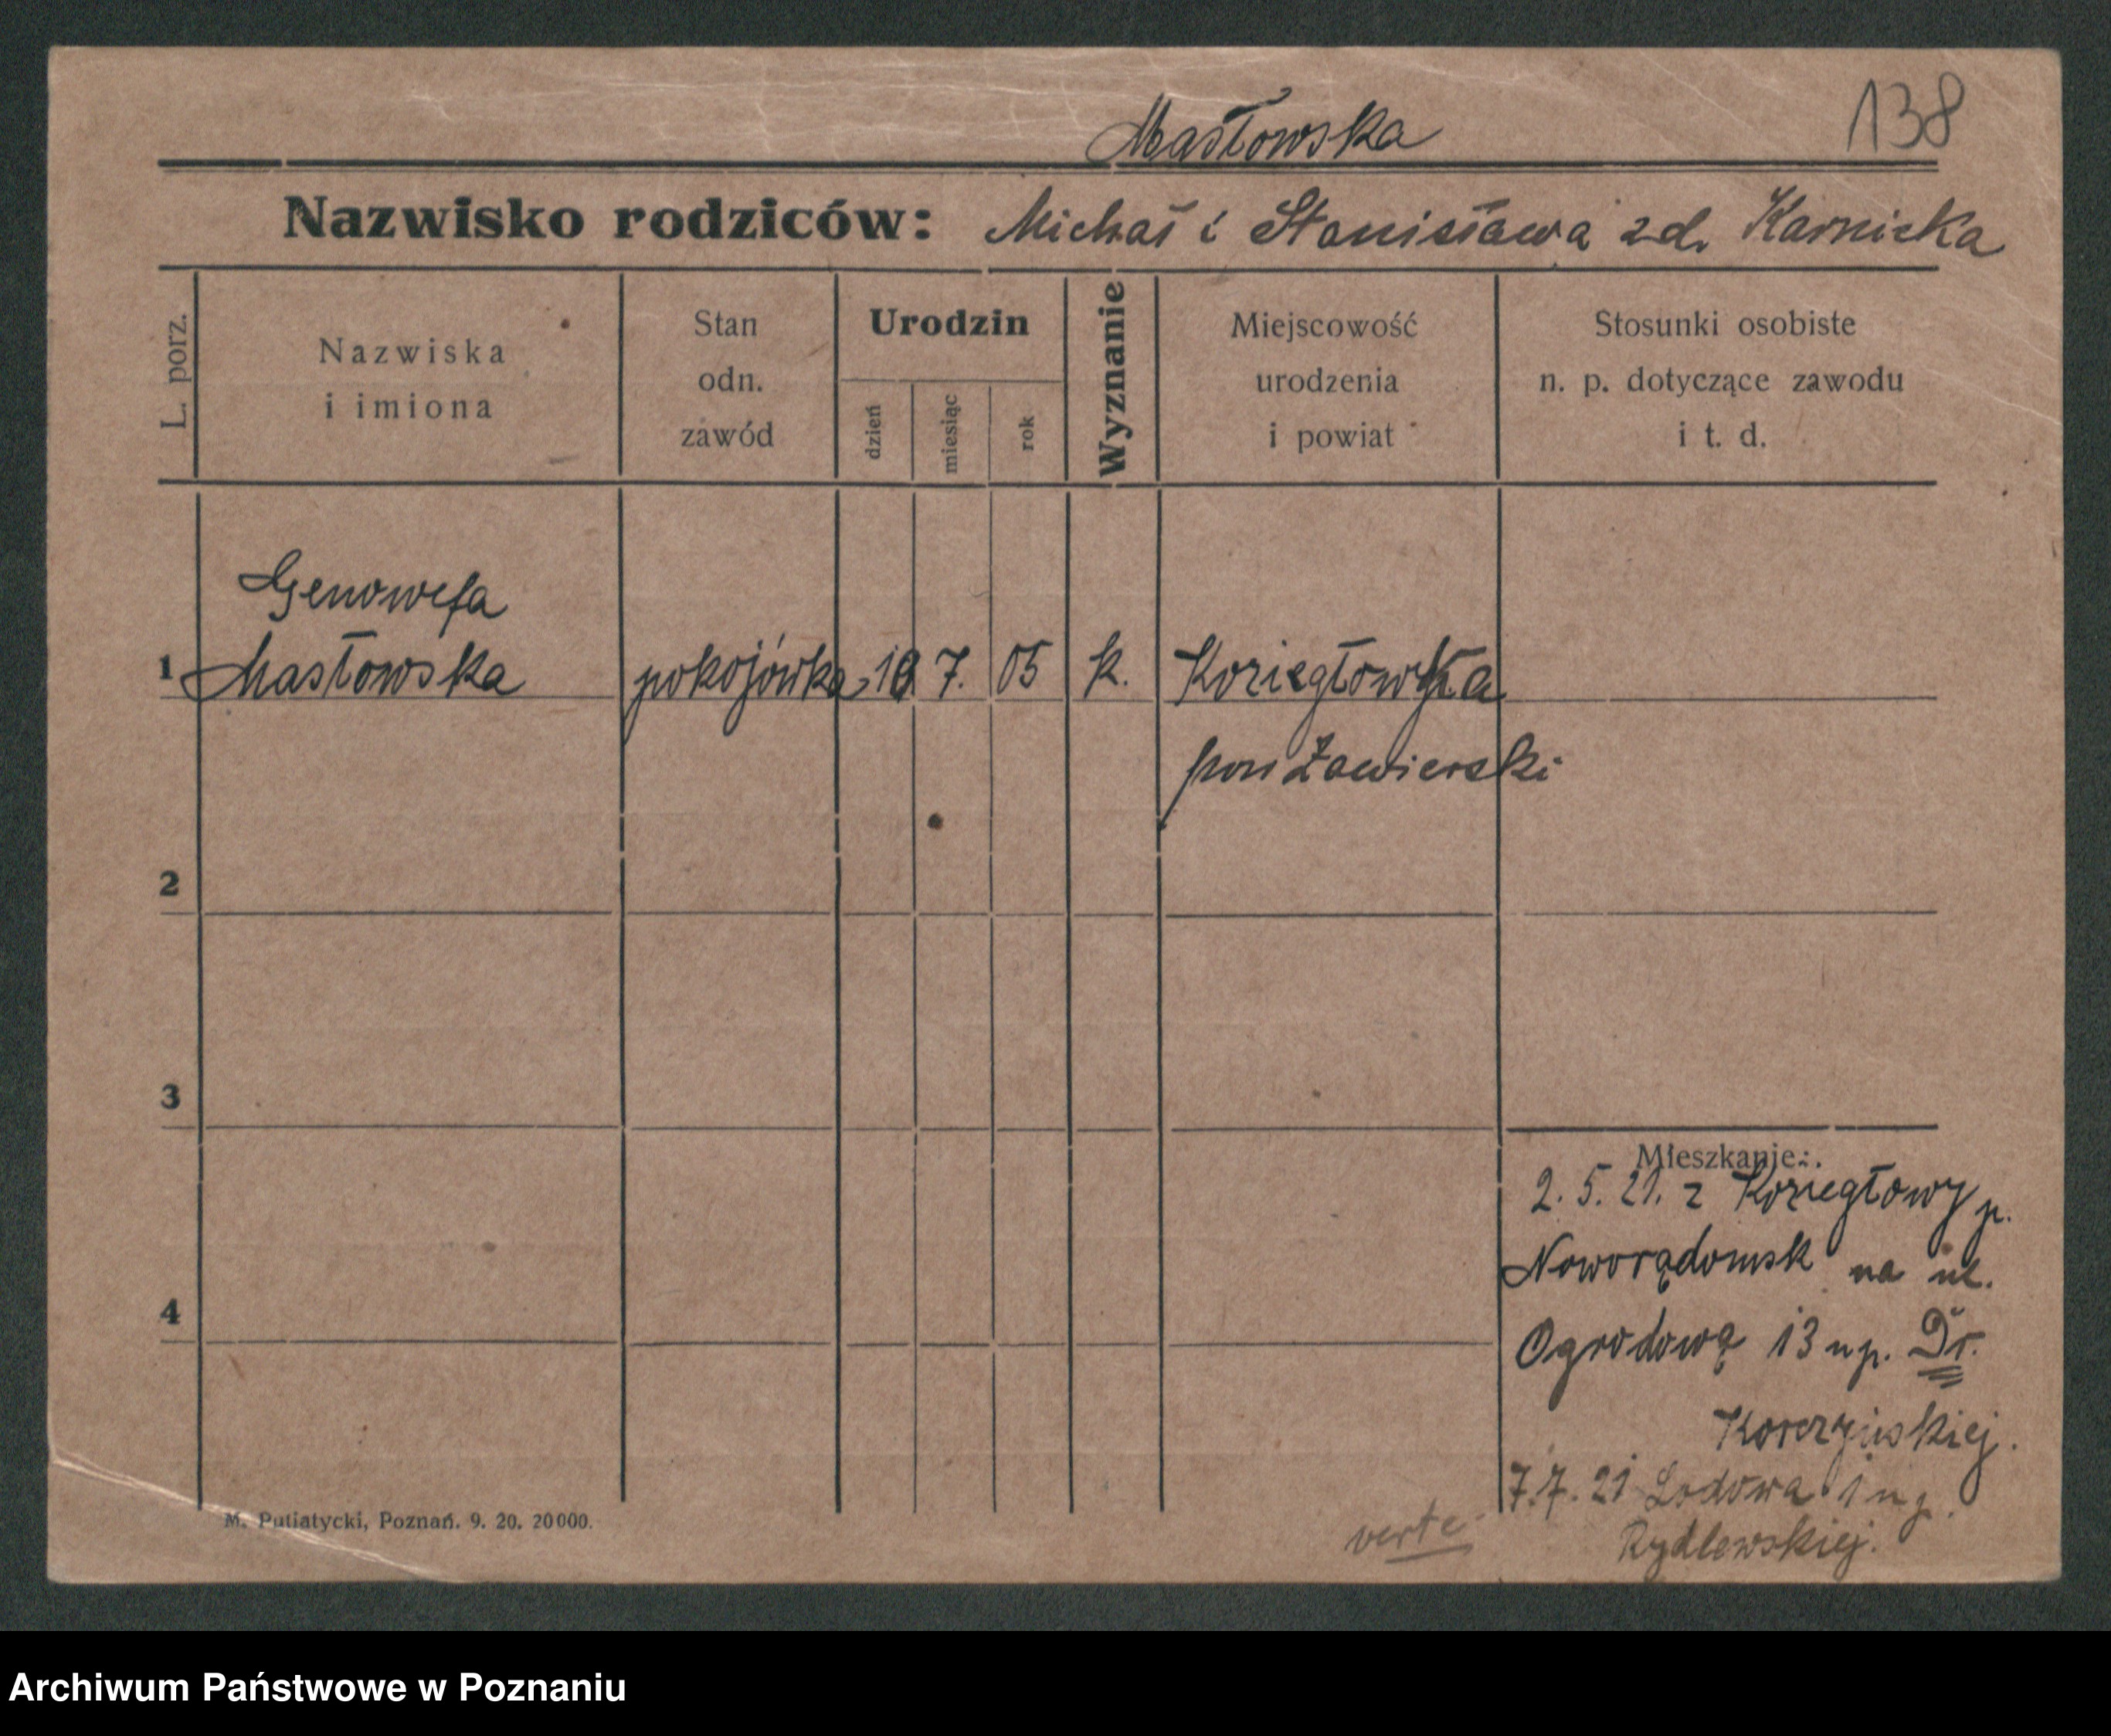 138
Masłowska
Nazwisko rodziców: Michał i Stanisława zd. Karnicka
L. porz.
Nazwiska
i imiona
Stan
odn.
zawód
Urodzin
dzień
miesiąc
rok
Wyznanie
Miejscowość
urodzenia
i powiat
Stosunki osobiste
n. p. dotyczące zawodu
i t. d.
Genowefa
1 Masłowska pokojówka 7. 05 k. Koziegłówka
pow Zawierski
2
3
4
Mieszkanie:
2. 5. 21. z Koziegłowy p.
Noworądomsk na ul.
Ogrodową 13 u p. Dr.
7.7.21 Lodowa 1 u p.
Rydlewskiej.
verte
M. Putiatycki, Poznań. 9. 20. 20000.
Archiwum Państwowe w Poznaniu